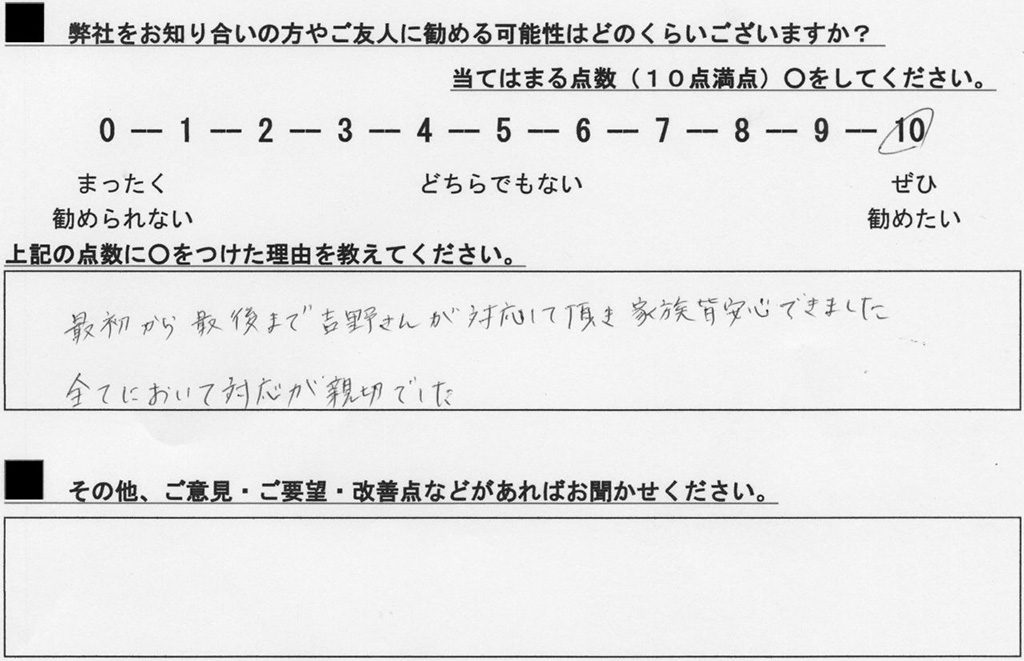 弊社をお知り合いの方やご友人に勧める可能性はどのくらいございますか？
当てはまる点数（１０点満点）〇をしてください。
0 ― 1 ― 2 ― 3 ― 4 ― 5 ― 6 ― 7 ― 8 ― 9 ― 10
まったく どちらでもない ぜひ
勧められない 勧めたい
上記の点数に〇をつけた理由を教えてください。
最初から最後まで吉野さんが対応して頂き家族皆安心できました
全てにおいて対応が親切でした
その他、ご意見・ご要望・改善点などがあればお聞かせください。